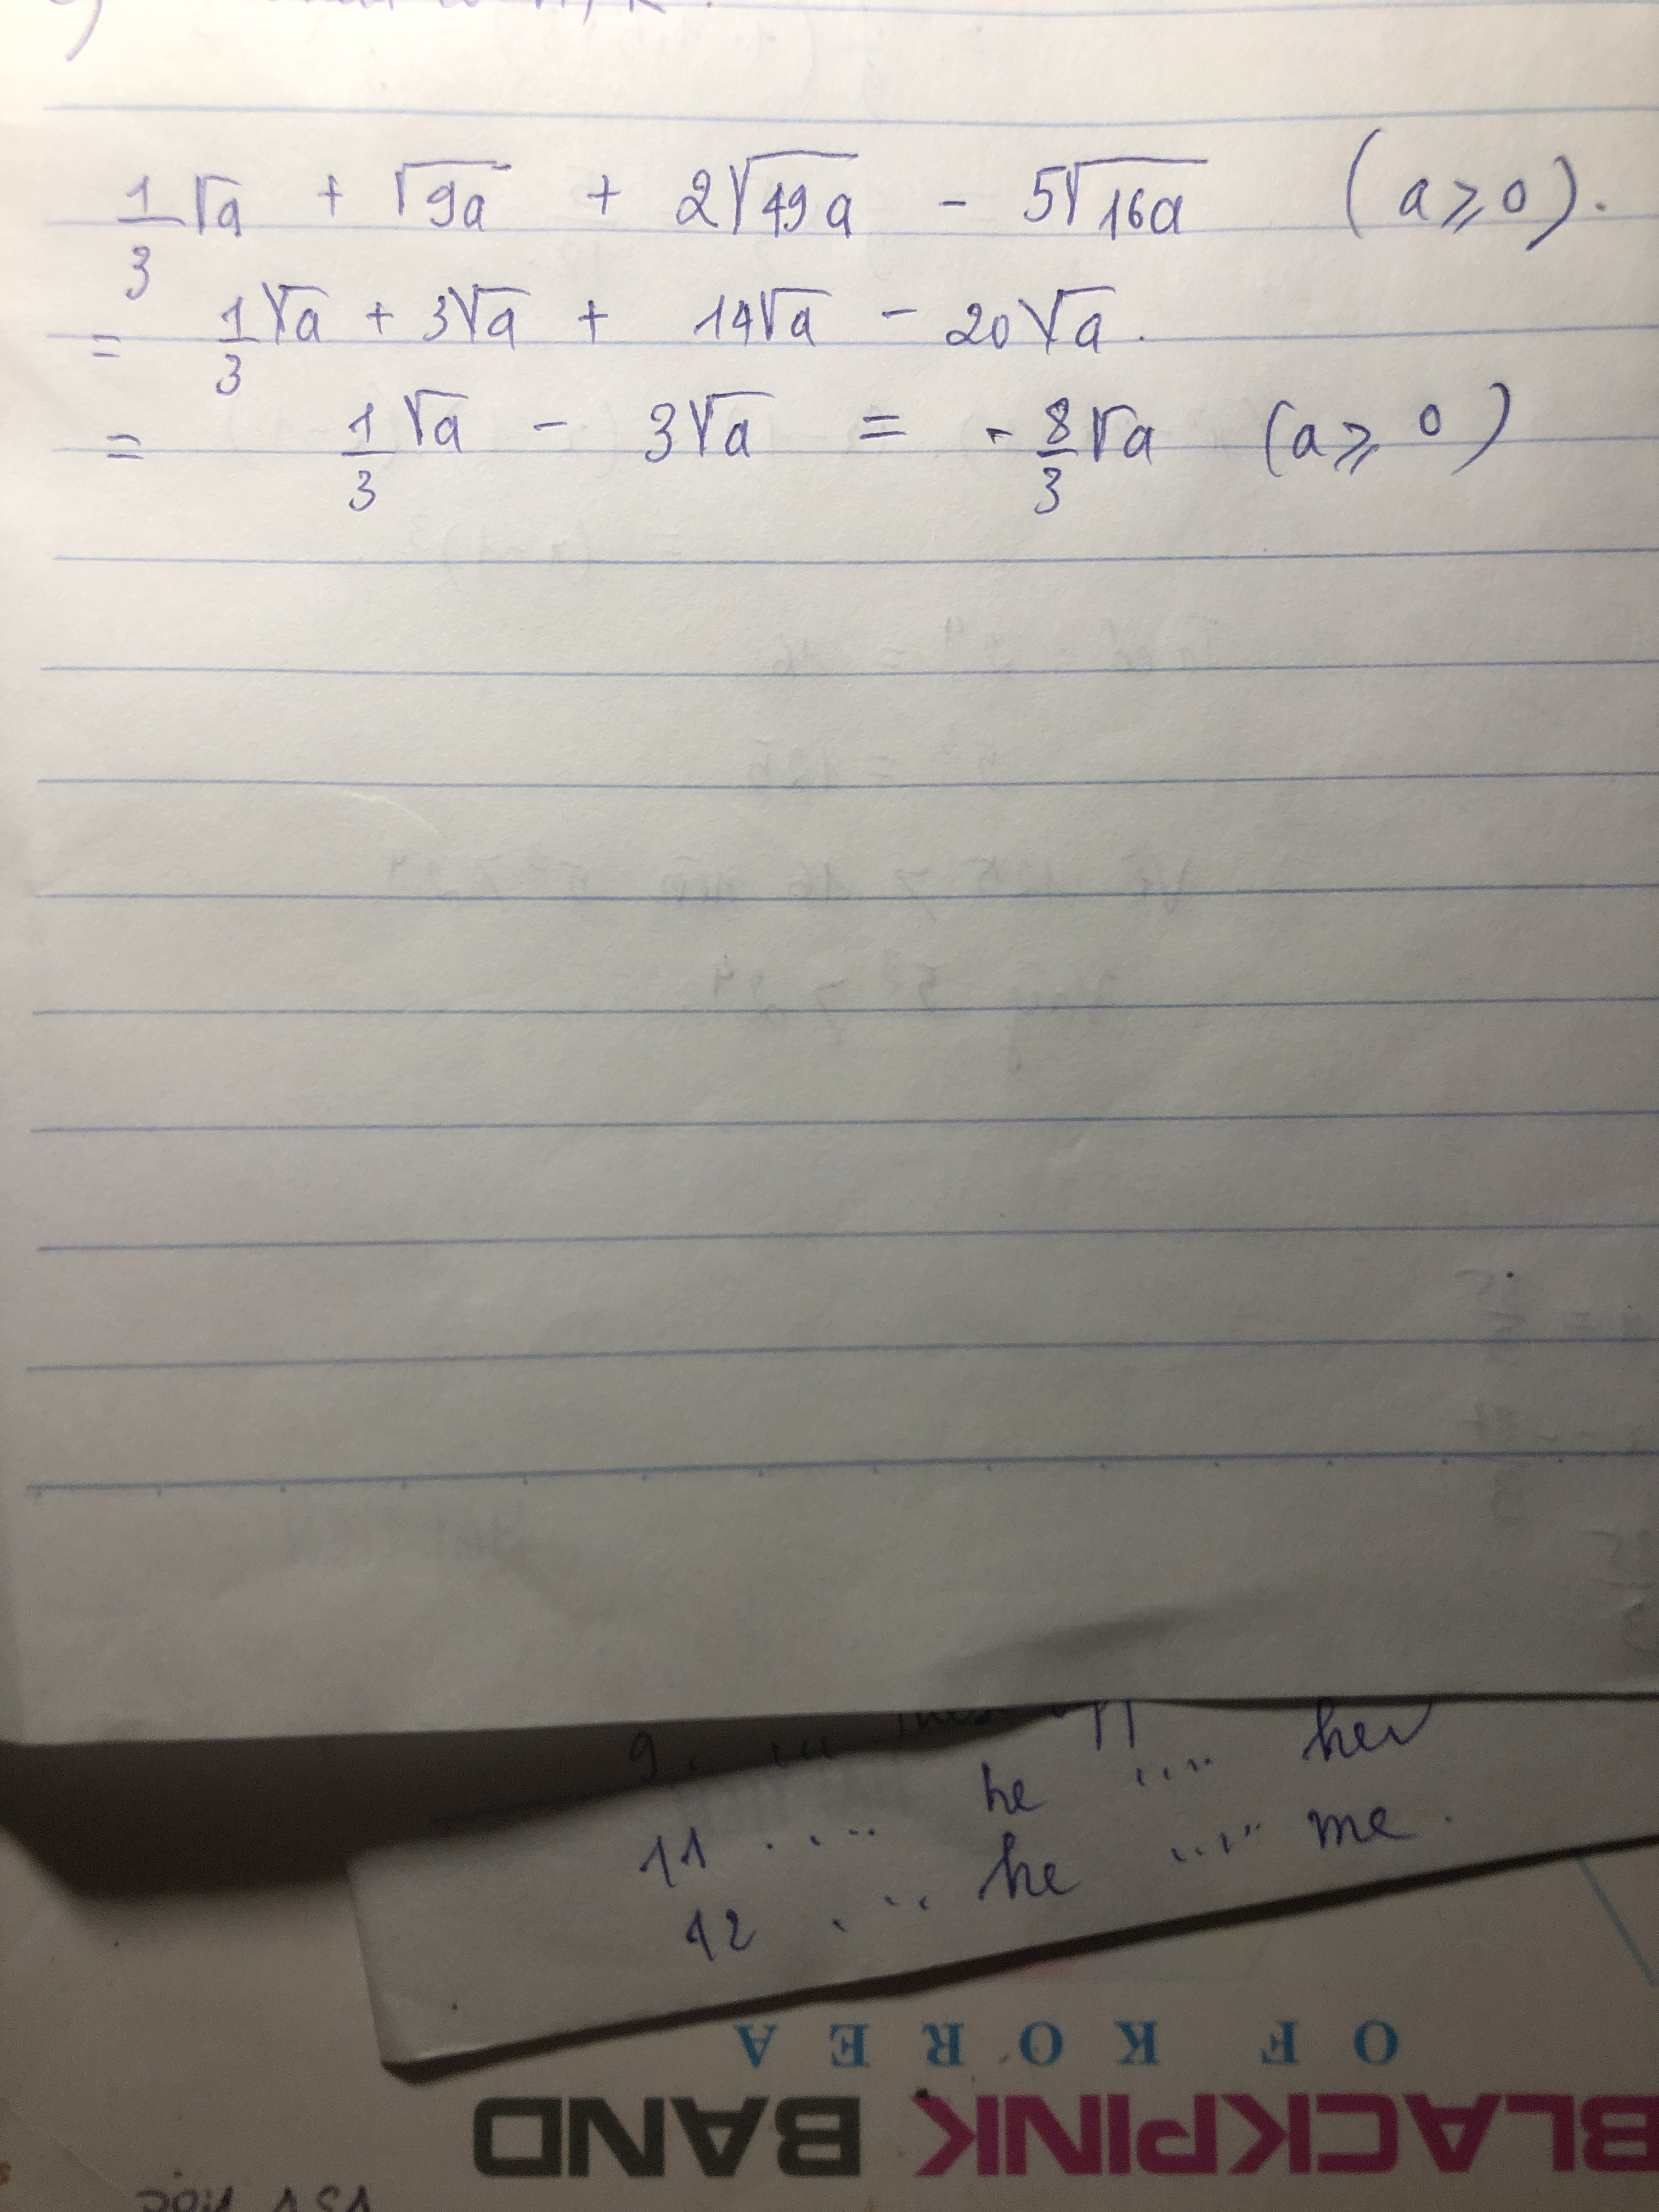 1/3 √a + √9a + 2√49a - 5√16a (a ⩾ 0).
= 1/3 √a + 3√a + 14√a - 20√a.
= 1/3 √a - 3√a = - 8/3 √a (a ⩾ 0)
9.
11 .... he .... her
12 .... he .... me.
OF KOREA
BLACKPINK BAND